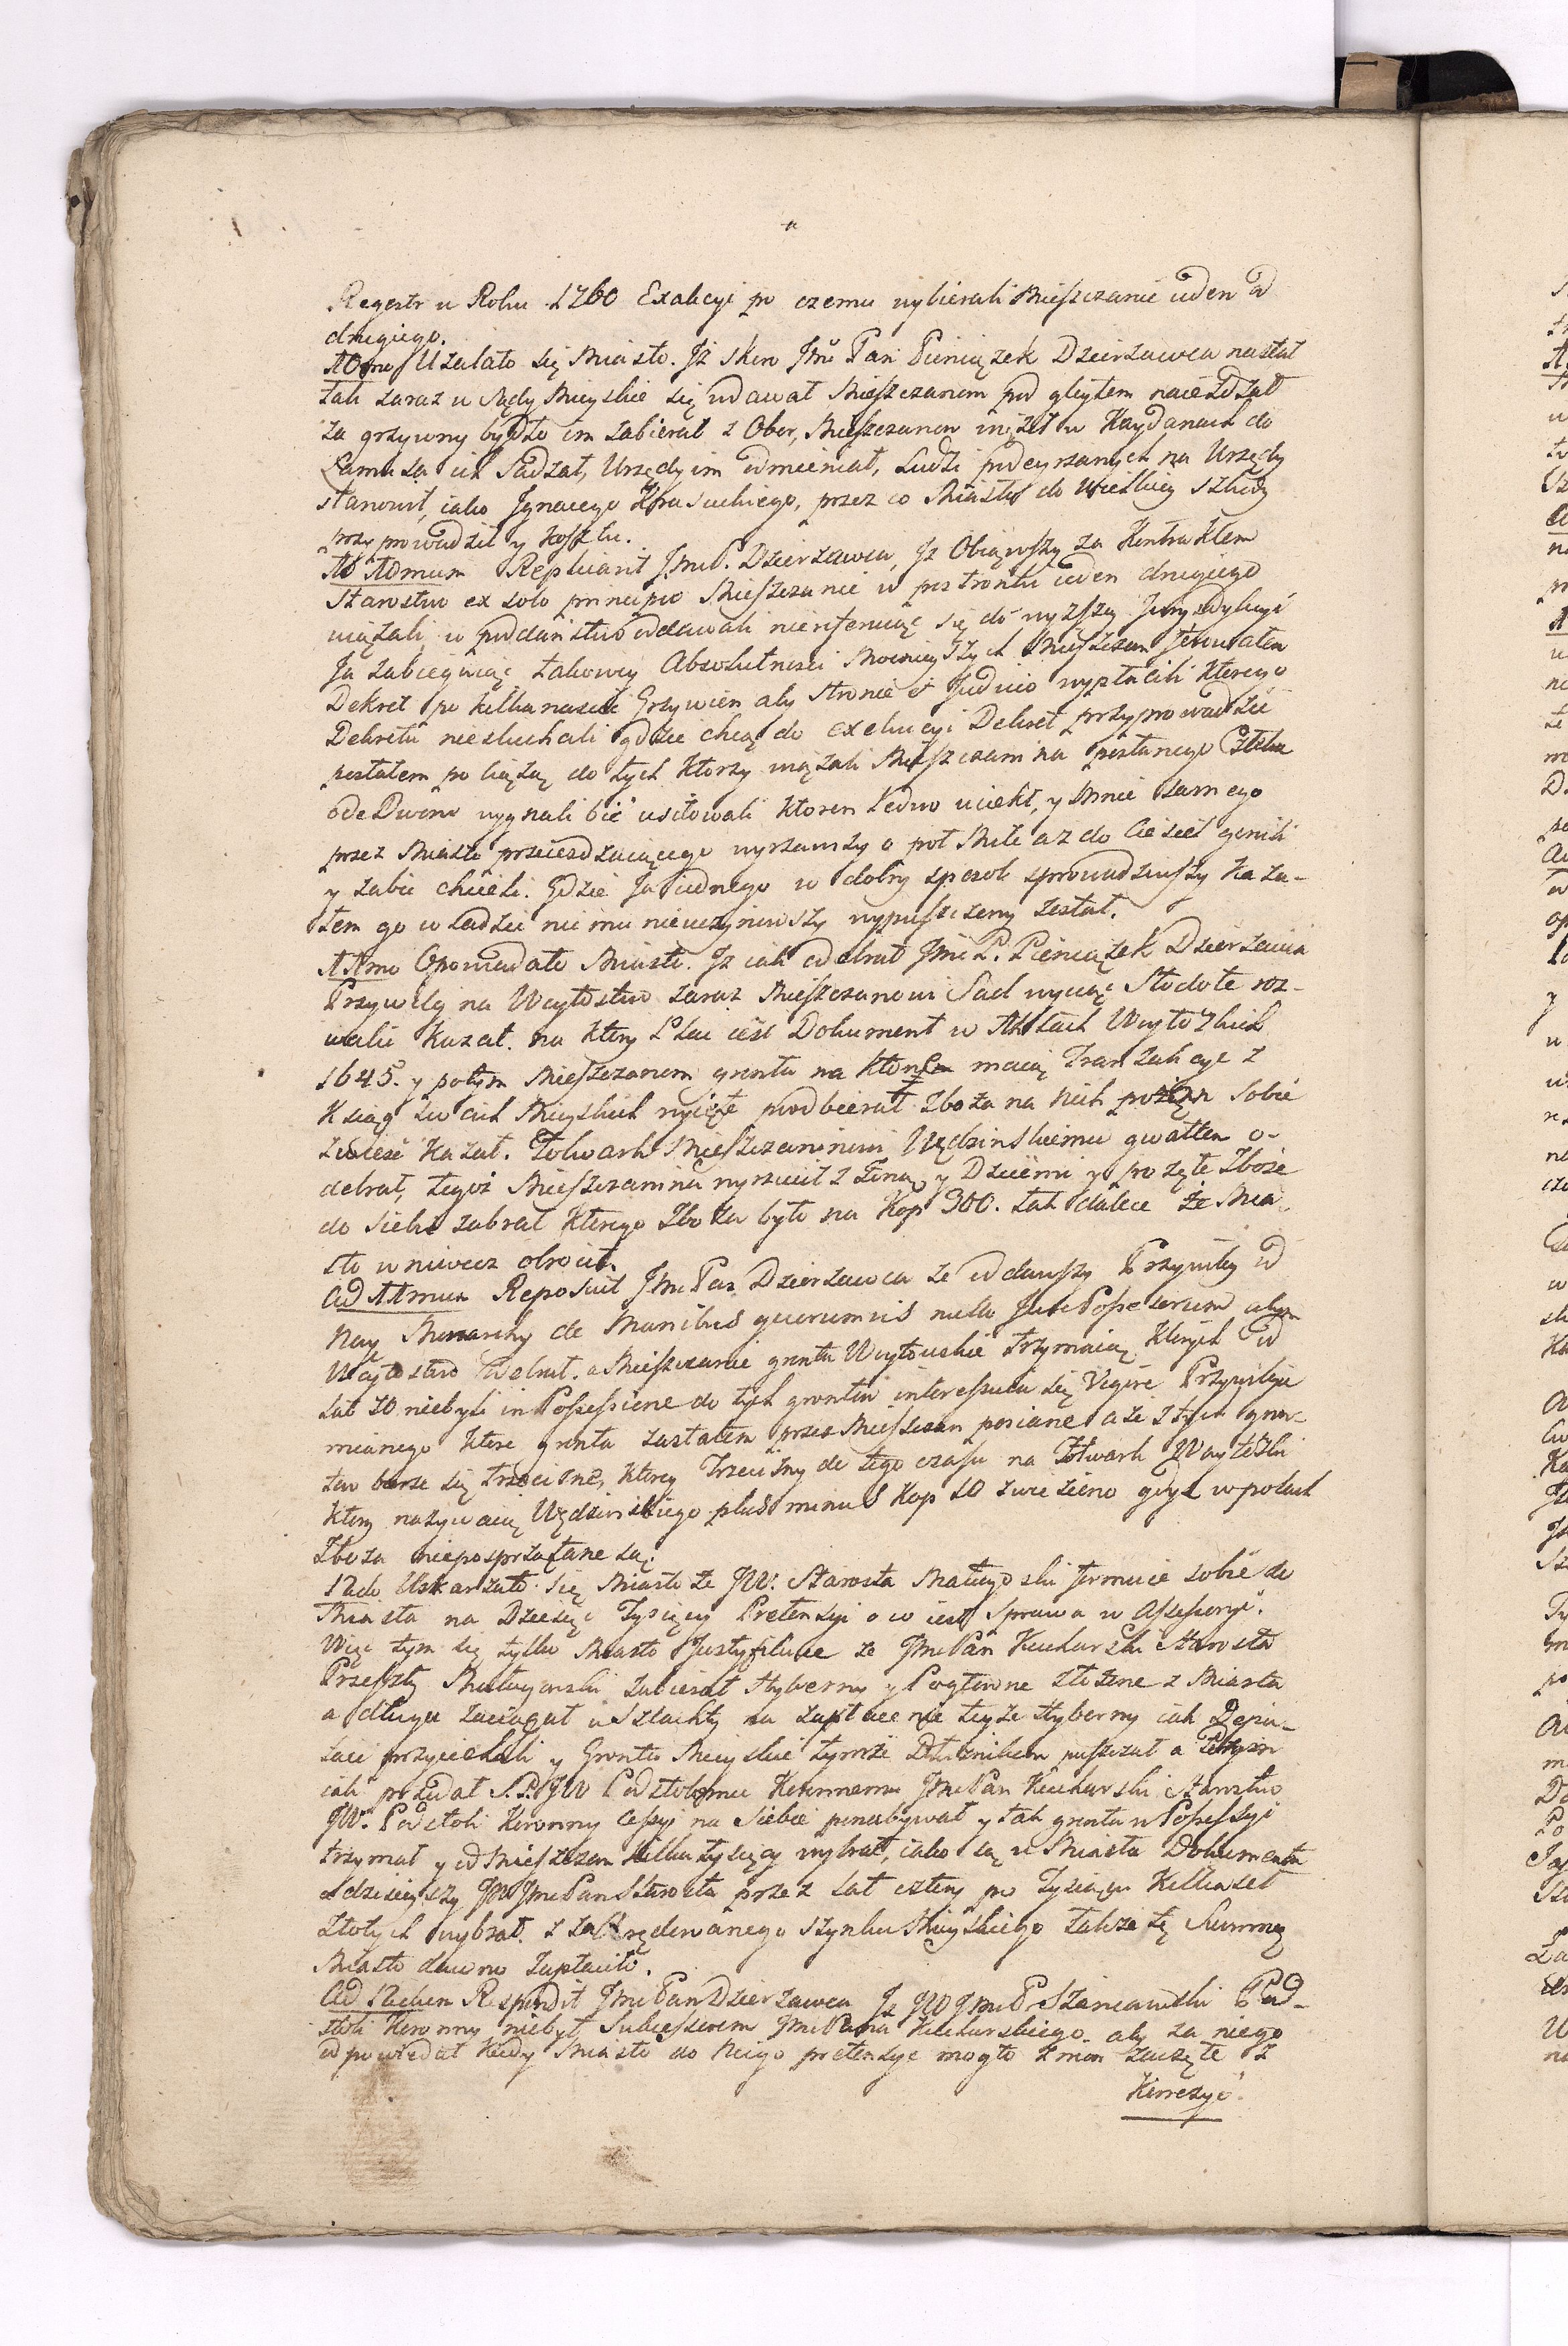 Regestr w Roku 1760 Exakcyi po czemu wybierali Mieszczanie ieden od
drugiego.
10mo Uzalało się Miasto. Iż skoro Jmć Pan Pieniązek Dzierzawca nastał
tak zaraz w Sądy Mieyskie się udawał Mieszczanom pod gleytem naiezdzał
za grzywny bydło im zabierał z Obor, Mieszczanow więził w Kaydanach do
Lamusa ich sadzał, Urzędy im odmieniał, Ludzi podeyrzanych na Urzędy
stanowił, iako Ignacego Krasuckiego, przez co Miasto do wielkiey szkody
przyprowadził y kosztu.
Ad 10mum Replicavit Jmć P. Dzierzawca, Iż Obiąwszy za Kontraktem
Starostwo ex solo principio Mieszczanie w postronki ieden drugiego
wiązali, w poddaństwo oddawali nierefferuiąc się do wyzszey Jurysdykcyi
Ja zabiegaiąc takowey Absolutnosci Mocnieyszych Mieszczan ferowałem
Dekret po kilkanascie Grzywien aby stronie et Judicio wypłacili ktorego
Dekretu niesłuchali gdzie chcąc do exekucyi Dekret przyprowadzić
posłałem po ciążą do tych ktorzy wiązali Mieszczanina posłanego Człeka
ode Dworu wygnali bić usiłowali ktoren ledwo uciekł, y mnie samego
przez Miasto przeiezdzaiącego wyrzawszy o poł Mile az do Ciesiel gonili
y zabic chcieli. Gdzie Ja iednego w dobry sposob sprowadziwszy kaza-
łem go wsadzić nic mu nieuczyniwszy wypuszczony został.
11mo Opowiadało Miasto. Iz iak odebrał Jmć P. Pieniązek Dzierzawca
Przywiley na Woytostwo zaraz Mieszczanowi Sad wyciąć Stodołe roz-
walić kazał. na ktory Plac iest Dokument w Aktach Woytowskich
1645. y potym Mieszczanom gronta na ktore maią Tranzakcye z
Ksiąg swoich Mieyskich wyięte poodbierał Zboza na nich pozięte Sobie
zwiesć kazał. Folwark Mieszczaninowi Wędzinskiemu gwałtem o-
debrał, tegoż Mieszczanina wyrzucił z Zoną y Dziećmi y pozęte Zboże
do siebie zabrał ktorego Zboza było na Kop 300. tak dalece że Mia-
sto w niwecz obrocił.
Ad 11mum Reposuit Jmć Pan Dzierzawca ze oddawszy Przywiley od
Nay Monarchy de Manibus quorumvis nullo Jure Possesorum abym
Woytostwo odebrał. a Mieszczanie gronta Woytowskie trzymaią, ktorych od
lat 20 niebyli in Possessione do tych grontow interessuia się Vigore Przywileju
mianego ktore gronta zastałem przez Mieszczan posiane a ze z tych gron-
tow bierze się trzecizne, ktorey Trzecizny do tego czasu na Folwark Woytowski
ktory nazywaią Wędzinskiego plus minus Kop 10 zwieziono gdyz w polach
Zboza nieposprzątane są.
12do Uskarzało się Miasto że JW. Starosta Małogoski formuie sobie do
Miasta na Dziesięć Tysięcy Pretensyi o co iest Sprawa w Assessoryi.
Więc tym się tylko Miasto Justyfikuie ze Jmć Pan Kucharski Starosta
Przeszły Małogowski zabierał Hyberny y Pogłowne złozone z Miasta
a długu zaciągał u Szlachty na zapłacenie teyże Hyberny iak Depu-
taci przyiechali y Gronta Mieyskie tymże Dłuznikom puszczał a potym
iak przedał S. P. JW Podstolemu Koronnemu Jmć Pan Kucharski Starostwo
JW. Podstoli Koronny Cessyi na siebie ponabywał y tak gronta w Possessyi
trzymał y od Mieszczan kilka tysięcy wybrał, iako są u Miasta Dokumenta
a dzisieyszy JW Jmć Pan Starosta przez lat cztery po Tysiącu Kilkaset
złotych wybrał. z zaArędowanego szynku Mieyskiego także tę Summę
Miasto dawno zapłaciło.
Ad 12dum Respondit Jmć Pan Dzierzawca Iż JW Jmć P. Szaniawski Pod-
stoli Koronny niebył Sukcessorem Jmć Pana Kucharskiego. aby za niego
odpowiedał kiedy Miasto do niego pretensye mogło z nim zaczęte
Konczyć.